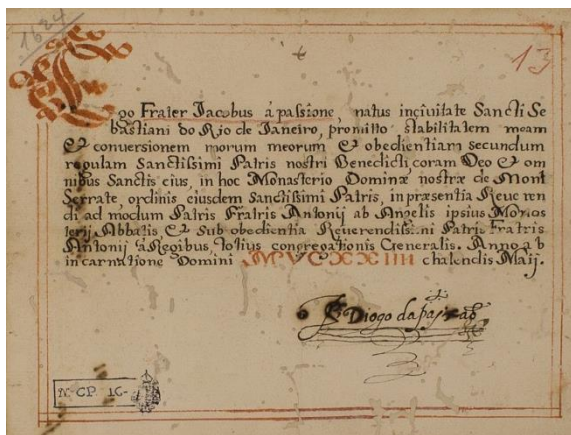 1624
13
Ego Frater Jacobus á passione, natus in civitate Sancti Se
bastiani do Rio de Janeiro, promitto stabilitatem meam
& conversionem morum meorum & obedientiam secundum
regulam Sanctissimi Patris nostri Benedicti coram Deo & om
nibus Sanctis eius, in hoc Monasterio Dominæ nostræ de Mont
Serrate, ordinis eiusdem Sanctissimi Patris, in præsentia Reveren
di admodum Patris Fratris Antonij ab Angelis ipsius Monas
terij Abbatis, & sub obedientia Reverendissimi Patris Fratris
Antonij á Regibus totius congregationis Generalis. Anno ab
incarnatione Domini chalendis Maij.
Fr Diogo da paixaõ
N-CP. 16-